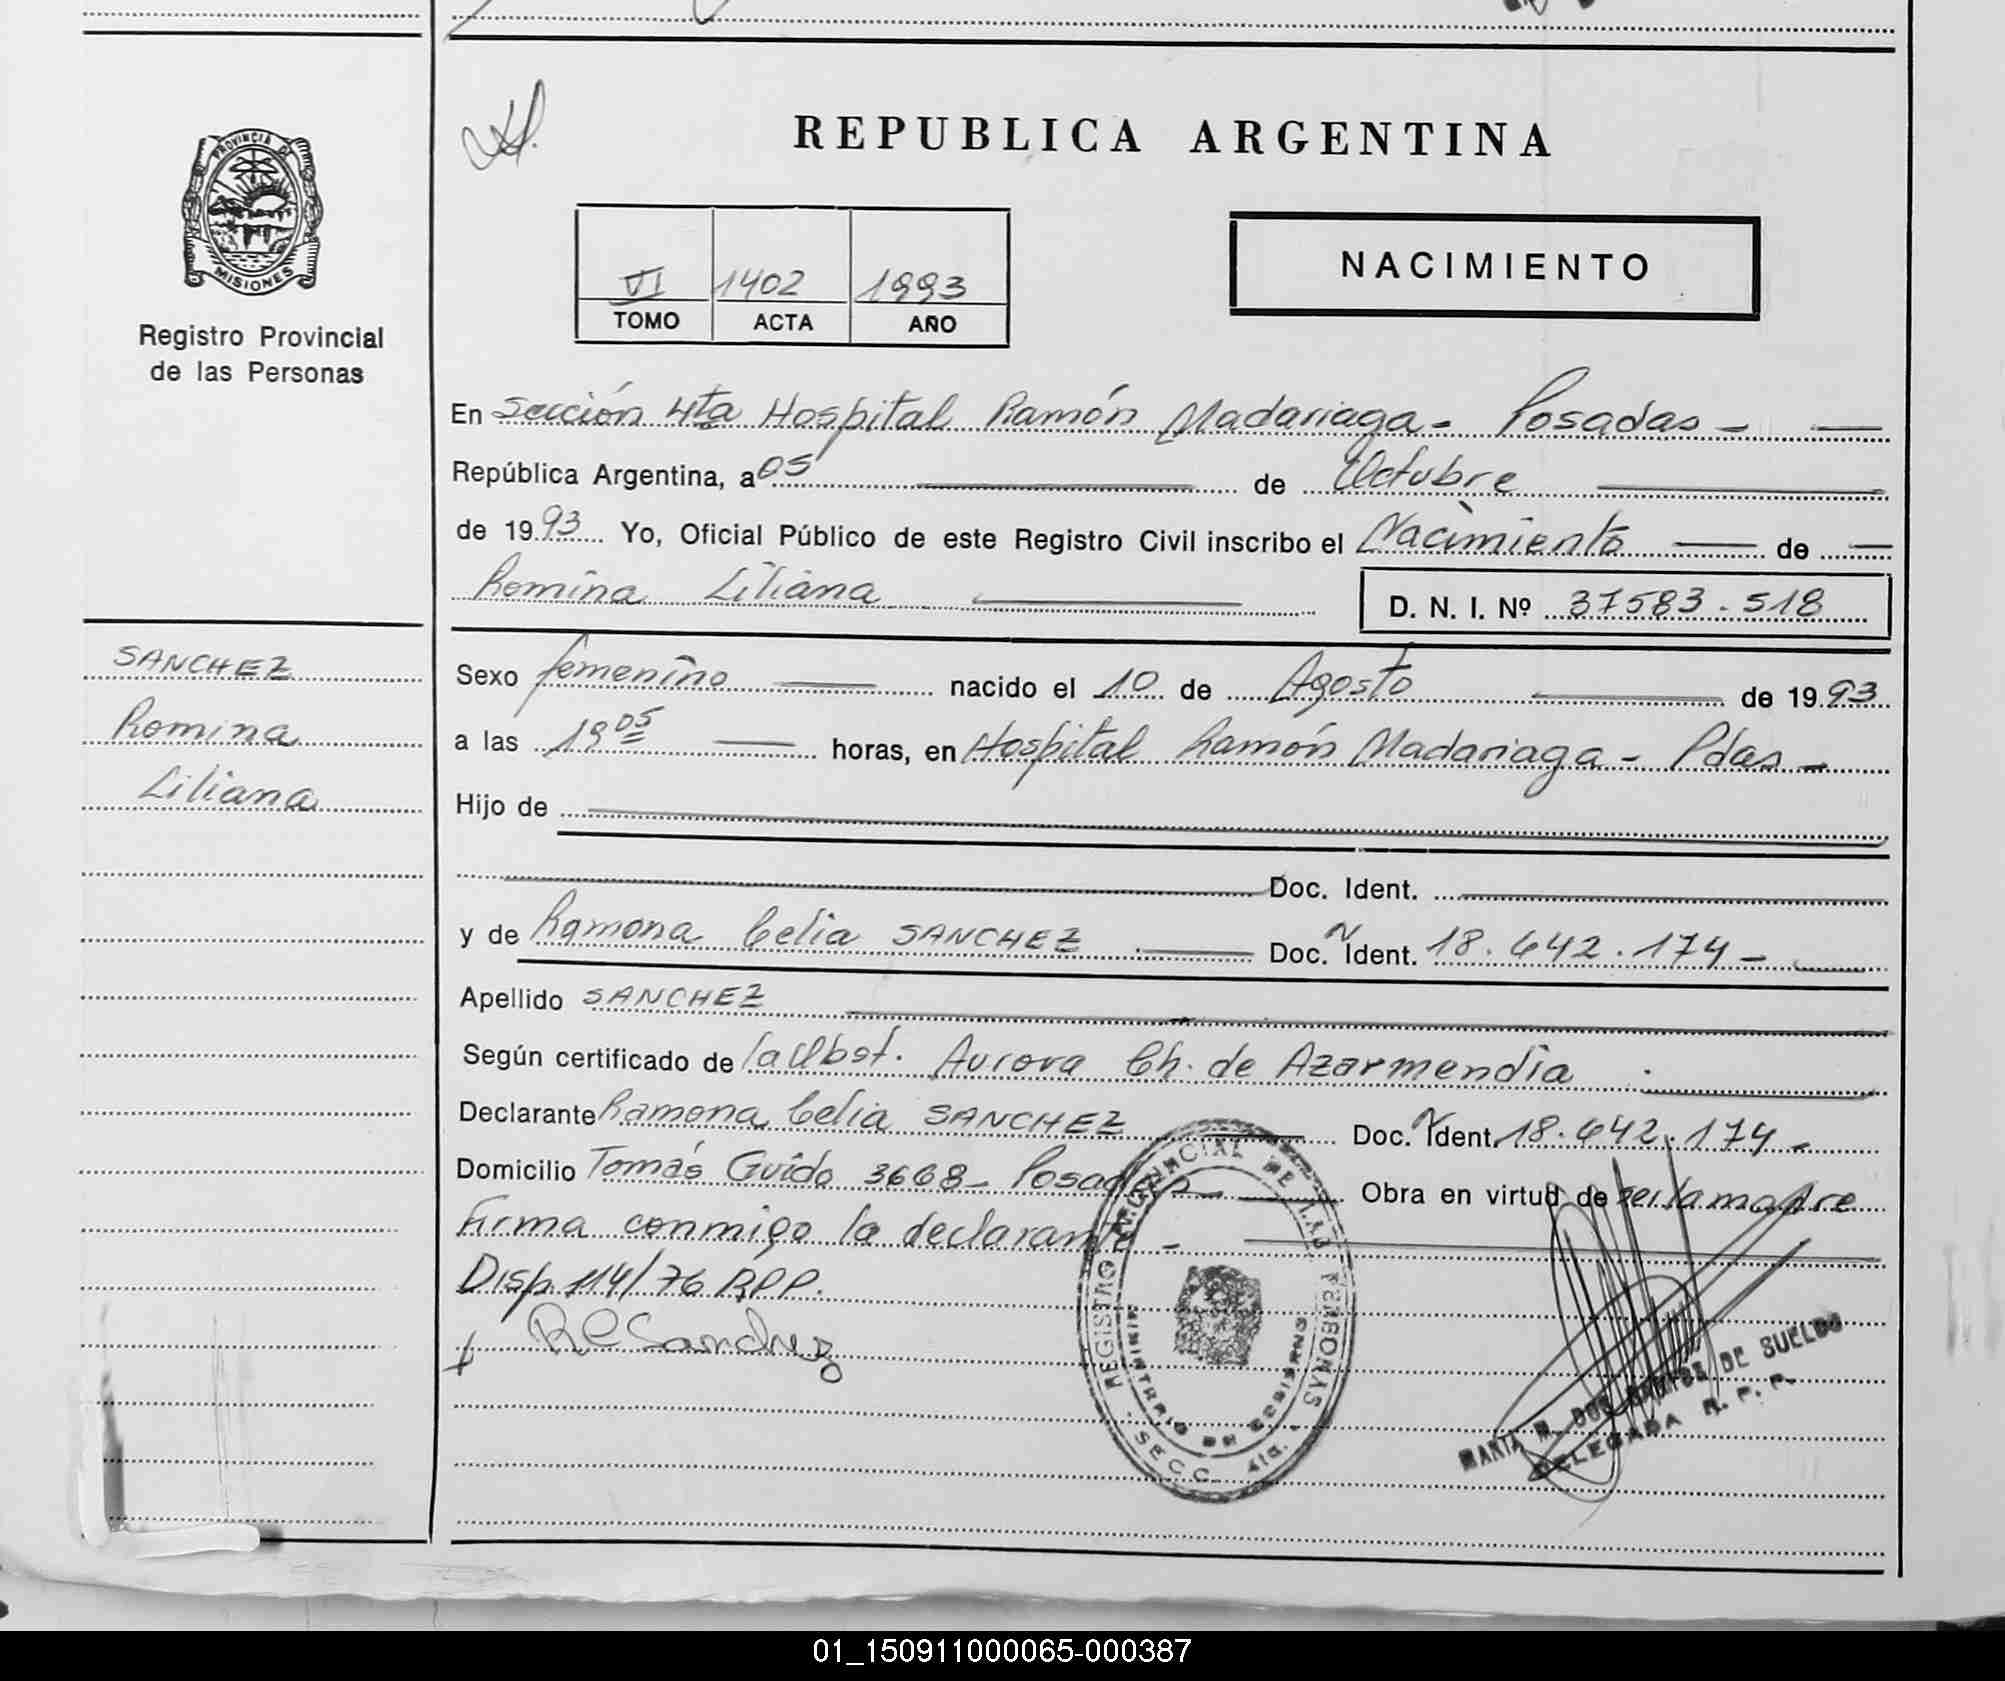 REPUBLICA ARGENTINA
PROVINCIA DE
MISIONES
Registro Provincial
de las Personas
VI 1402 1993
TOMO ACTA AÑO
NACIMIENTO
En Sección 4ta Hospital Ramón Madariaga - Posadas -
República Argentina, a 05 de Octubre
de 1993 Yo, Oficial Público de este Registro Civil inscribo el Nacimiento de
Romina Liliana D. N. I. Nº 37583.518
SANCHEZ
Romina
Liliana
Sexo femenino nacido el 10 de Agosto de 1993
a las 19 05 horas, en Hospital Ramón Madariaga - Pdas -
Hijo de
Doc. Ident.
y de Ramona Celia SANCHEZ Doc. N Ident. 18.642.174 -
Apellido SANCHEZ
Según certificado de la Obst. Aurora Ch. de Azarmendia
Declarante Ramona Celia SANCHEZ Doc. N Ident. 18.642.174 -
Domicilio Tomás Guido 3668 - Posadas - Obra en virtud de ser la madre
Firma conmigo la declarante -
Disp. 114/76 RPP.
RCSanchez
REGISTRO PROVINCIAL DE LAS PERSONAS
MINISTERIO DE GOBIERNO
SECC. 4ta.
MARTA M. DOS SANTOS DE SUELDO
DELEGADA R. P. P.
01_150911000065-000387